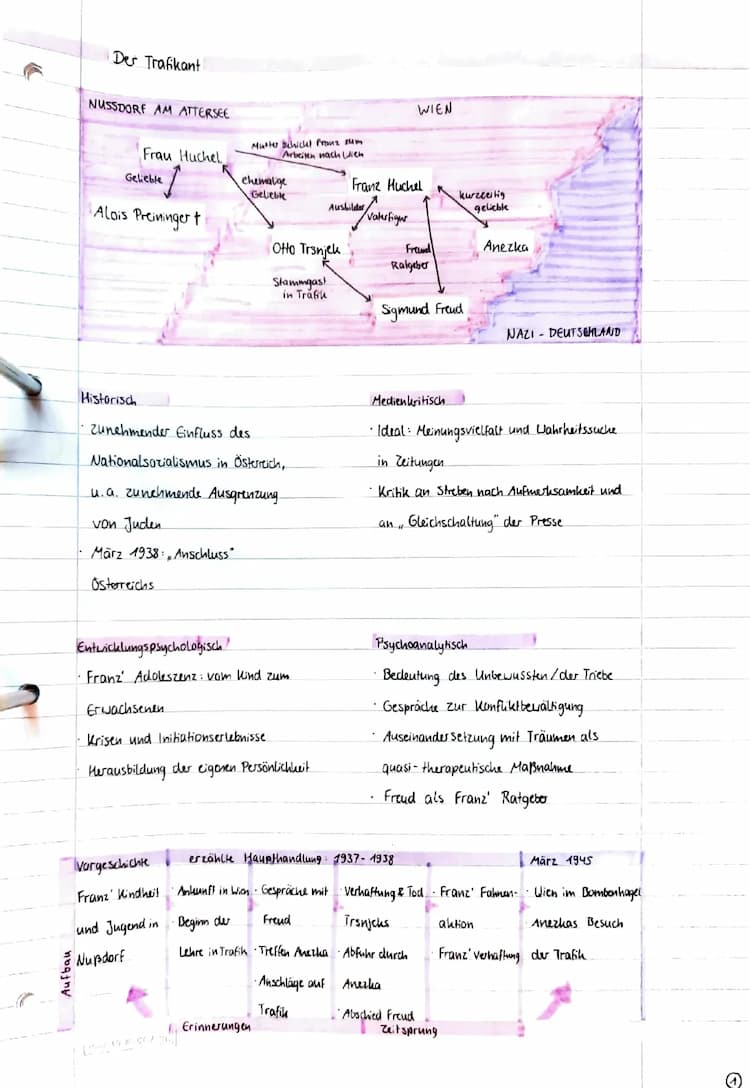 Der Trafikant
NUSSDORF AM ATTERSEE
WIEN
Mutter schickt Franz zum
Arbeiten nach Wien
Frau Huchel
Franz Huchel
Geliebte
ehemalige
Geliebte
kurzzeitig
geliebte
Alois Preininger †
Ausbilder
Vaterfigur
Otto Trsnjek
Freund
Ratgeber
Anezka
Stammgast
in Trafik
Sigmund Freud
NAZI - DEUTSCHLAND
Historisch
· zunehmender Einfluss des
Nationalsozialismus in Österreich,
u.a. zunehmende Ausgrenzung
von Juden
· März 1938: „Anschluss"
Österreichs
Medienkritisch
· Ideal: Meinungsvielfalt und Wahrheitssuche
in Zeitungen
· Kritik an Streben nach Aufmerksamkeit und
an „Gleichschaltung" der Presse
Entwicklungspsychologisch
· Franz' Adoleszenz: vom Kind zum
Erwachsenen
· Krisen und Initiationserlebnisse
· Herausbildung der eigenen Persönlichkeit
Psychoanalytisch
· Bedeutung des Unbewussten/der Triebe
· Gespräche zur Konfliktbewältigung
· Auseinandersetzung mit Träumen als
quasi-therapeutische Maßnahme
· Freud als Franz' Ratgeber
Aufbau
Vorgeschichte
Franz' Kindheit
und Jugend in
Nußdorf
erzählte Haupthandlung: 1937-1938
· Ankunft in Wien
· Beginn der
Lehre in Trafik
· Gespräche mit
Freud
· Treffen Anezka
· Anschläge auf
Trafik
· Verhaftung & Tod
Trsnjeks
· Abfuhr durch
Anezka
· Abschied Freud
· Franz' Fahnen-
aktion
· Franz' Verhaftung
März 1945
· Wien im Bombenhagel
· Anezkas Besuch
der Trafik
Erinnerungen
Zeitsprung
1